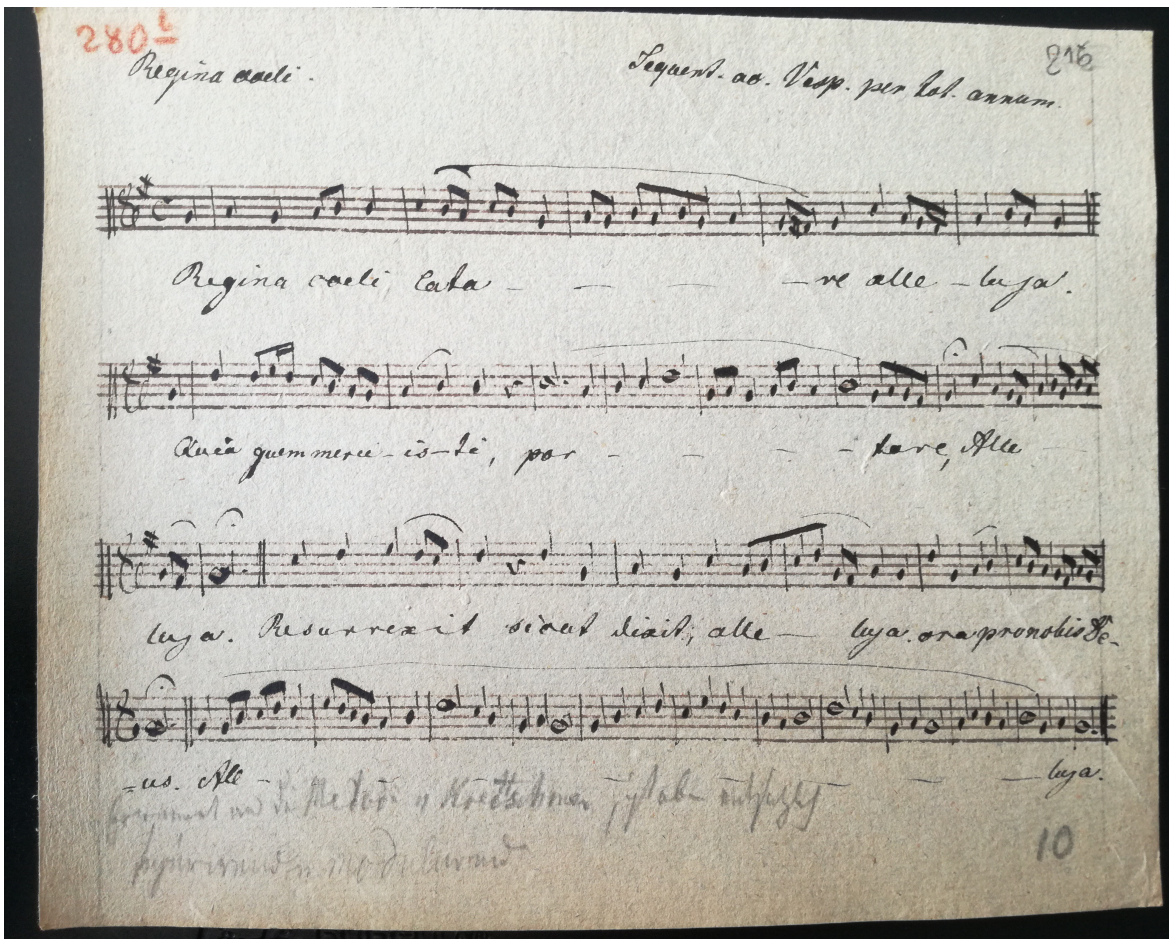 280
Regina coeli. Sequent. ad. Vesp. per tot. annum.
Regina coeli lata - - - - re alle - luja.
Quia quem meru - is - ti, por - - - - tare, Alle -
luja. Resurrexit sicut dixit, alle - luja. ora pro nobis De-
- us. All - - - - - - - - luja.
an die Melodie v
modulierend
10